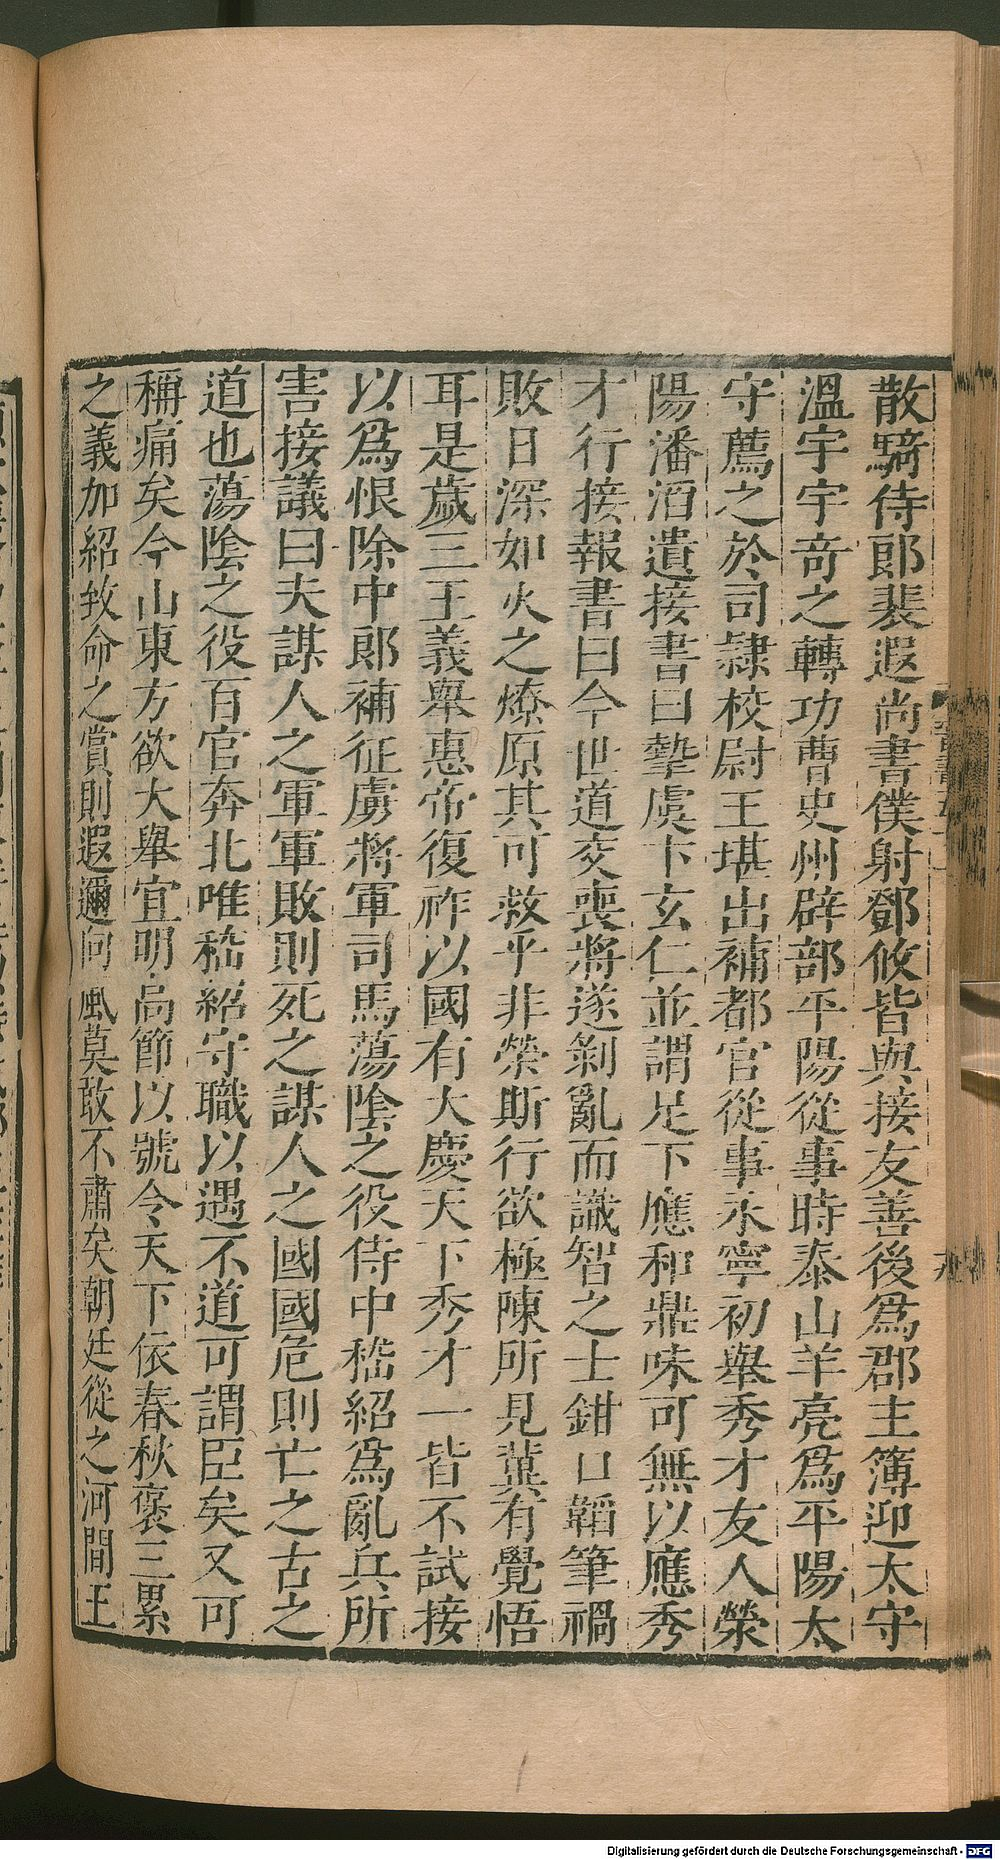 散騎侍郎裴遐尚書僕射鄧攸皆與接友善後爲郡主簿迎太守
溫宇宇奇之轉功曹史州辟部平陽從事時泰山羊亮爲平陽太
守薦之於司隸校尉王堪出補都官從事永寧初舉秀才友人滎
陽潘滔遺接書曰摯虞卞玄仁並謂足下應和鼎味可無以應秀
才行接報書曰今世道交喪將遂剝亂而識智之士鉗口韜筆禍
敗日深如火之燎原其可救乎非榮斯行欲極陳所見冀有覺悟
耳是歲三王義舉惠帝復祚以國有大慶天下秀才一皆不試接
以爲恨除中郎補征虜將軍司馬蕩陰之役侍中嵇紹爲亂兵所
害接議曰夫謀人之軍軍敗則死之謀人之國國危則亡之古之
道也蕩陰之役百官奔北唯嵇紹守職以遇不道可謂臣矣又可
稱痛矣今山東方欲大舉宜明高節以號令天下依春秋褒三累
之義加紹致命之賞則遐邇向風莫敢不肅矣朝廷從之河間王
Digitalisierung gefördert durch die Deutsche Forschungsgemeinschaft - DFG